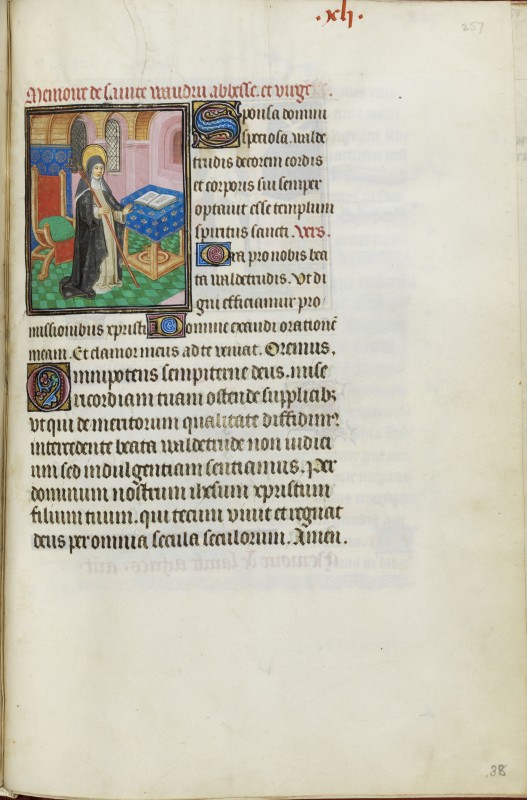 .xli.
257
Memoire de sainte waudru abbesse. et virge.
Sponsa domini
speciosa. walde
trudis decorem cordis
et corporis sui semper
optauit esse templum
spiritus sancti. Vers.
Ora pro nobis bea
ta waldetrudis. Vt di
gni efficiamur pro
missionibus xpristi Domine exaudi orationē
meam. Et clamor meus ad te veniat. Oremus.
Omnipotens sempiterne deus. mise
ricordiam tuam ostende supplicib;
vt qui de meritorum qualitate diffidim⁹
intercedente beata waldetrude non iudici
um sed indulgentiam sentiamus. Per
dominum nostrum ihesum xpristum
filium tuum. qui tecum viuit et regnat
deus per omnia secula seculorum. Amen.
38